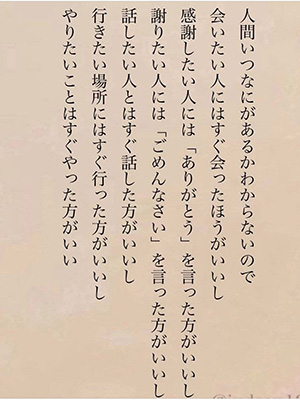 人間いつなにがあるかわからないので
会いたい人にはすぐ会ったほうがいいし
感謝したい人には「ありがとう」を言った方がいいし
謝りたい人には「ごめんなさい」を言った方がいいし
話したい人とはすぐ話した方がいいし
行きたい場所にはすぐ行った方がいいし
やりたいことはすぐやった方がいい